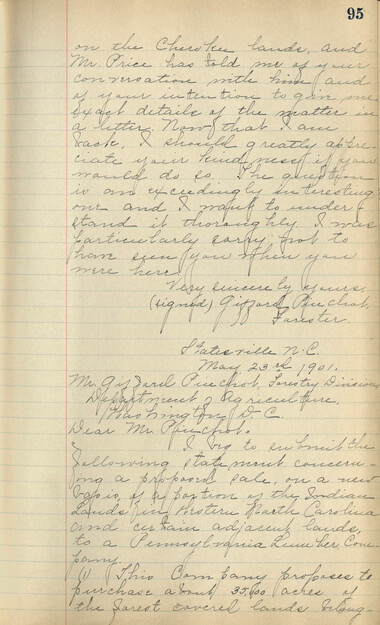 95
on the Cherokee lands, and
Mr. Price has told me of your
conversation with him and
of your intention to give me
exact details of the matter in
a letter. Now that I am
back, I should greatly appre-
ciate your kindness if you
would do so. The question
is an exceedingly interesting
one and I want to under-
stand it thoroughly. I was
particularly sorry not to
have seen you when you
were here.
Very sincerely yours,
(signed) Gifford Pinchot,
Forester.
Statesville N.C.
May 23rd 1901.
Mr. Gifford Pinchot, Forestry Division,
Department of Agriculture,
Washington D.C.
Dear Mr. Pinchot:
I beg to submit the
following statement concern-
ing a proposed sale, on a new
basis, of a portion of the Indian
Lands in Western North Carolina
and certain adjacent lands,
to a Pennsylvania Lumber Com-
pany.
(1) This Company proposes to
purchase about 35,000 acres of
the forest covered lands belong-